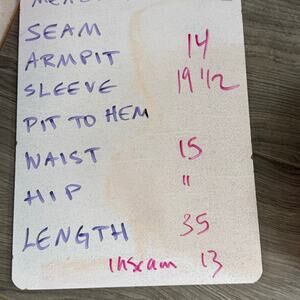 SEAM
ARMPIT 14
SLEEVE 19 1/2
PIT TO HEM
WAIST 15
HIP "
LENGTH 35
Inseam 13